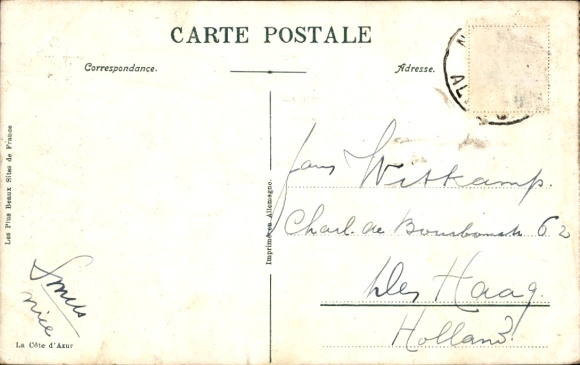 CARTE POSTALE
Correspondance.
Adresse.
Les Plus Beaux Sites de France
Imprimé en Allemagne.
Witkamp.
Charl. de Bourbonstr. 62
Den Haag.
Holland
Nice
La Côte d'Azur